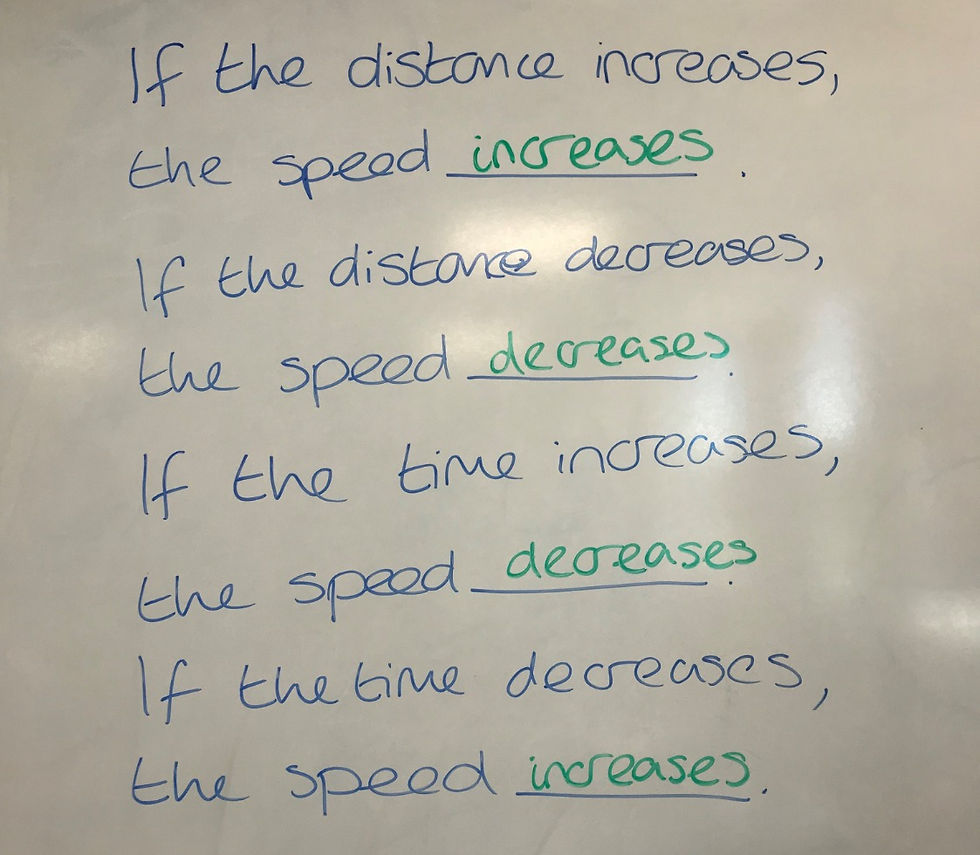 If the distance increases,
the speed increases.
If the distance decreases,
the speed decreases.
If the time increases,
the speed decreases.
If the time decreases,
the speed increases.